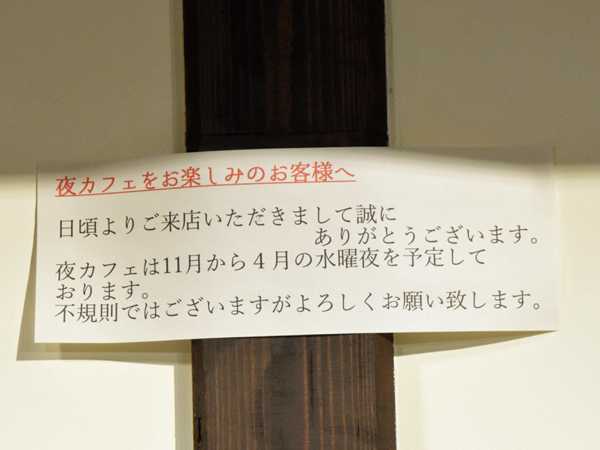 夜カフェをお楽しみのお客様へ
日頃よりご来店いただきまして誠に
ありがとうございます。
夜カフェは11月から４月の水曜夜を予定して
おります。
不規則ではございますがよろしくお願い致します。